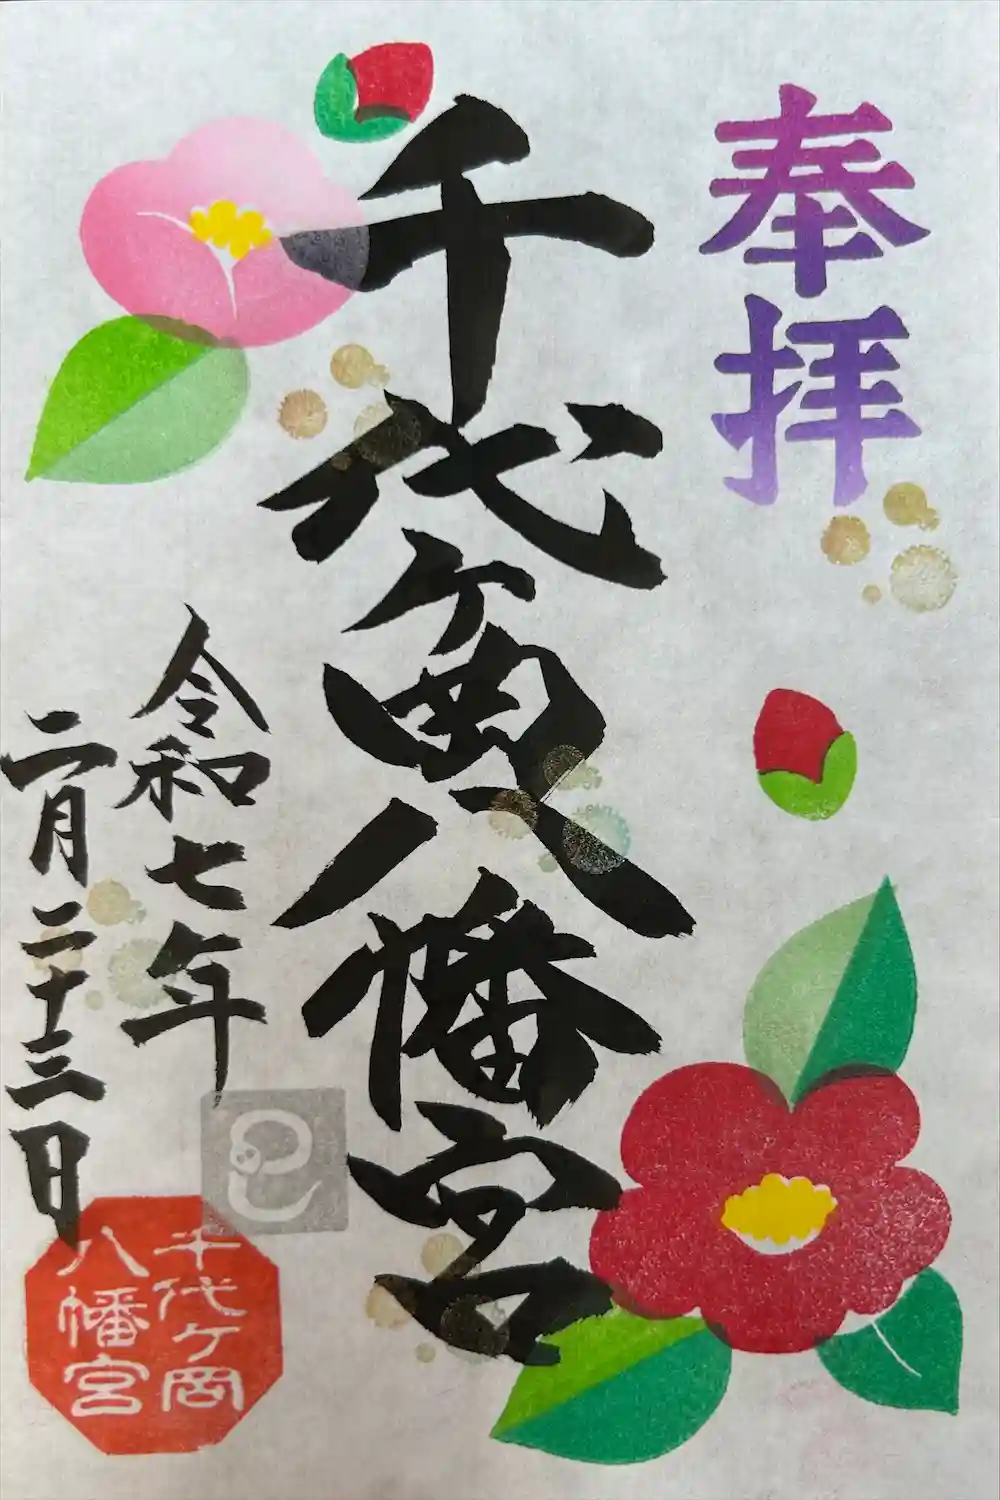 奉拝
千代ヶ岡八幡宮
令和七年
二月二十三日
巳
千代ヶ岡
八幡宮